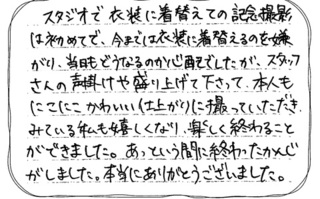 スタジオで衣装に着替えての記念撮影
は初めてで、今までは衣装に着替えるのを嫌
がり、当日もどうなるのか心配でしたが、スタッフ
さんの声掛けや盛り上げて下さって、本人も
にこにこかわいい仕上がりに撮っていただき
みている私も嬉しくなり、楽しく終わること
ができました。あっという間に終わったかんじ
がしました。本当にありがとうございました。